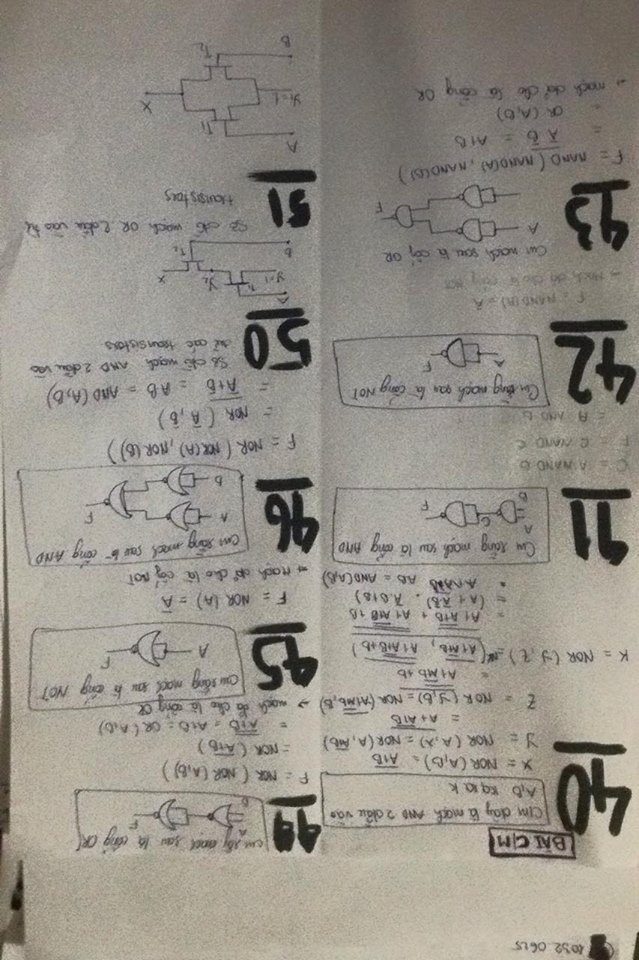 1032.0625
BÀI C/M
40
C/m đây là mạch AND 2 đầu vào
A,B kq ra K
X = NOR (A,B) = \overline{A+B}
Y = NOR (A,X) = NOR (A, \overline{A+B})
= \overline{A + \overline{A+B}}
Z = NOR (Y,B) = NOR (\overline{A+\overline{A+B}}, B)
= \overline{\overline{A+\overline{A+B}}+B}
K = NOR (Y,Z) =
AB = AND(A,B)
41
Cm rằng mạch sau là cổng AND
A
B
C
F
C = A NAND B
F = C NAND C
= A AND B
42
Cm rằng mạch sau là cổng NOT
A
F
F = NAND(A) = \overline{A}
→ Mạch đã cho là cổng NOT
43
Cm mạch sau là cổng OR
A
F
F = NAND (NAND(A), NAND(B))
= \overline{\overline{A} \overline{B}} = A+B
= OR (A,B)
→ mạch đã cho là cổng OR
44
Cm rằng mạch sau là cổng OR
A
B
F
F = NOR ( NOR (A,B) )
= NOR (\overline{A+B})
= \overline{\overline{A+B}} = A+B = OR (A,B)
→ mạch đã cho là cổng OR
45
Cm rằng mạch sau là cổng NOT
A
F
F = NOR (A) = \overline{A}
→ Mạch đã cho là cổng NOT
46
Cm rằng mạch sau là cổng AND
A
B
F
F = NOR ( NOR (A), NOR (B) )
= NOR (\overline{A}, \overline{B})
= \overline{\overline{A}+\overline{B}} = AB = AND (A,B)
50
Sơ đồ mạch AND 2 đầu vào
từ các transistors
A
Y1=1
T1
Y2
X
B
T2
51
Sơ đồ mạch OR 2 đầu vào từ
transistors
A
T1
Y1=1
X
T2
B